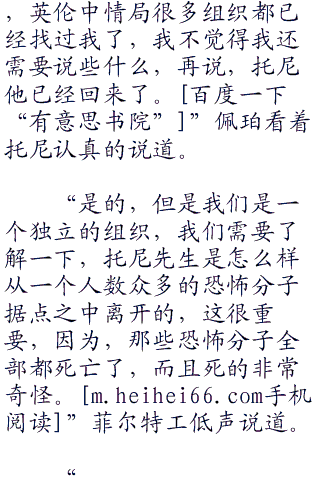 ，英伦中情局很多组织都已
经找过我了，我不觉得我还
需要说些什么，再说，托尼
他已经回来了。[百度一下
“有意思书院”]”佩珀看着
托尼认真的说道。
“是的，但是我们是一
个独立的组织，我们需要了
解一下，托尼先生是怎么样
从一个人数众多的恐怖分子
据点之中离开的，这很重
要，因为，那些恐怖分子全
部都死亡了，而且死的非常
奇怪。[m.heihei66.com手机
阅读]”菲尔特工低声说道。
“